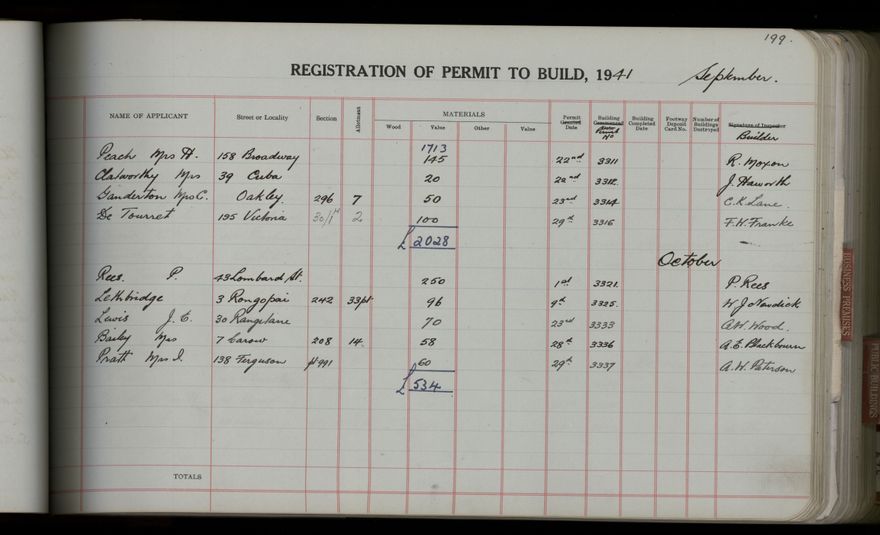 199.
REGISTRATION OF PERMIT TO BUILD, 1941 September.
NAME OF APPLICANT Street or Locality Section Allotment MATERIALS Wood Value Other Value Permit Granted Date Building Commenced Date Permit No Building Completed Date Footway Deposit Card No. Number of Buildings Destroyed Signature of Inspector Builder
1713
Peach Mrs H. 158 Broadway 145 22nd 3311 R. Moxon
Clatworthy Mrs 39 Cuba 20 22nd 3312 J. Haworth
Ganderton Mrs C. Oakley 296 7 50 23rd 3314 C. K. Lane.
De Tourret 195 Victoria 30/1 2 100 29th 3316 F. H. Franke
£ 2028
October
Rees. P. 43 Lombard St. 250 1st 3321. P. Rees
Lethbridge 3 Rongopai 242 33pt 96 9th 3325. W. J. Nardick
Lewis J. E. 30 Rangitane 70 23rd 3333 A. W. Wood.
Bailey Mrs 7 Carow 208 14. 58 28th 3336 A. E. Blackbourn
Pratt Mrs I. 138 Ferguson pt 991 60 29th 3337 A. H. Paterson
£ 534
TOTALS
BUSINESS PREMISES
PUBLIC BUILDINGS